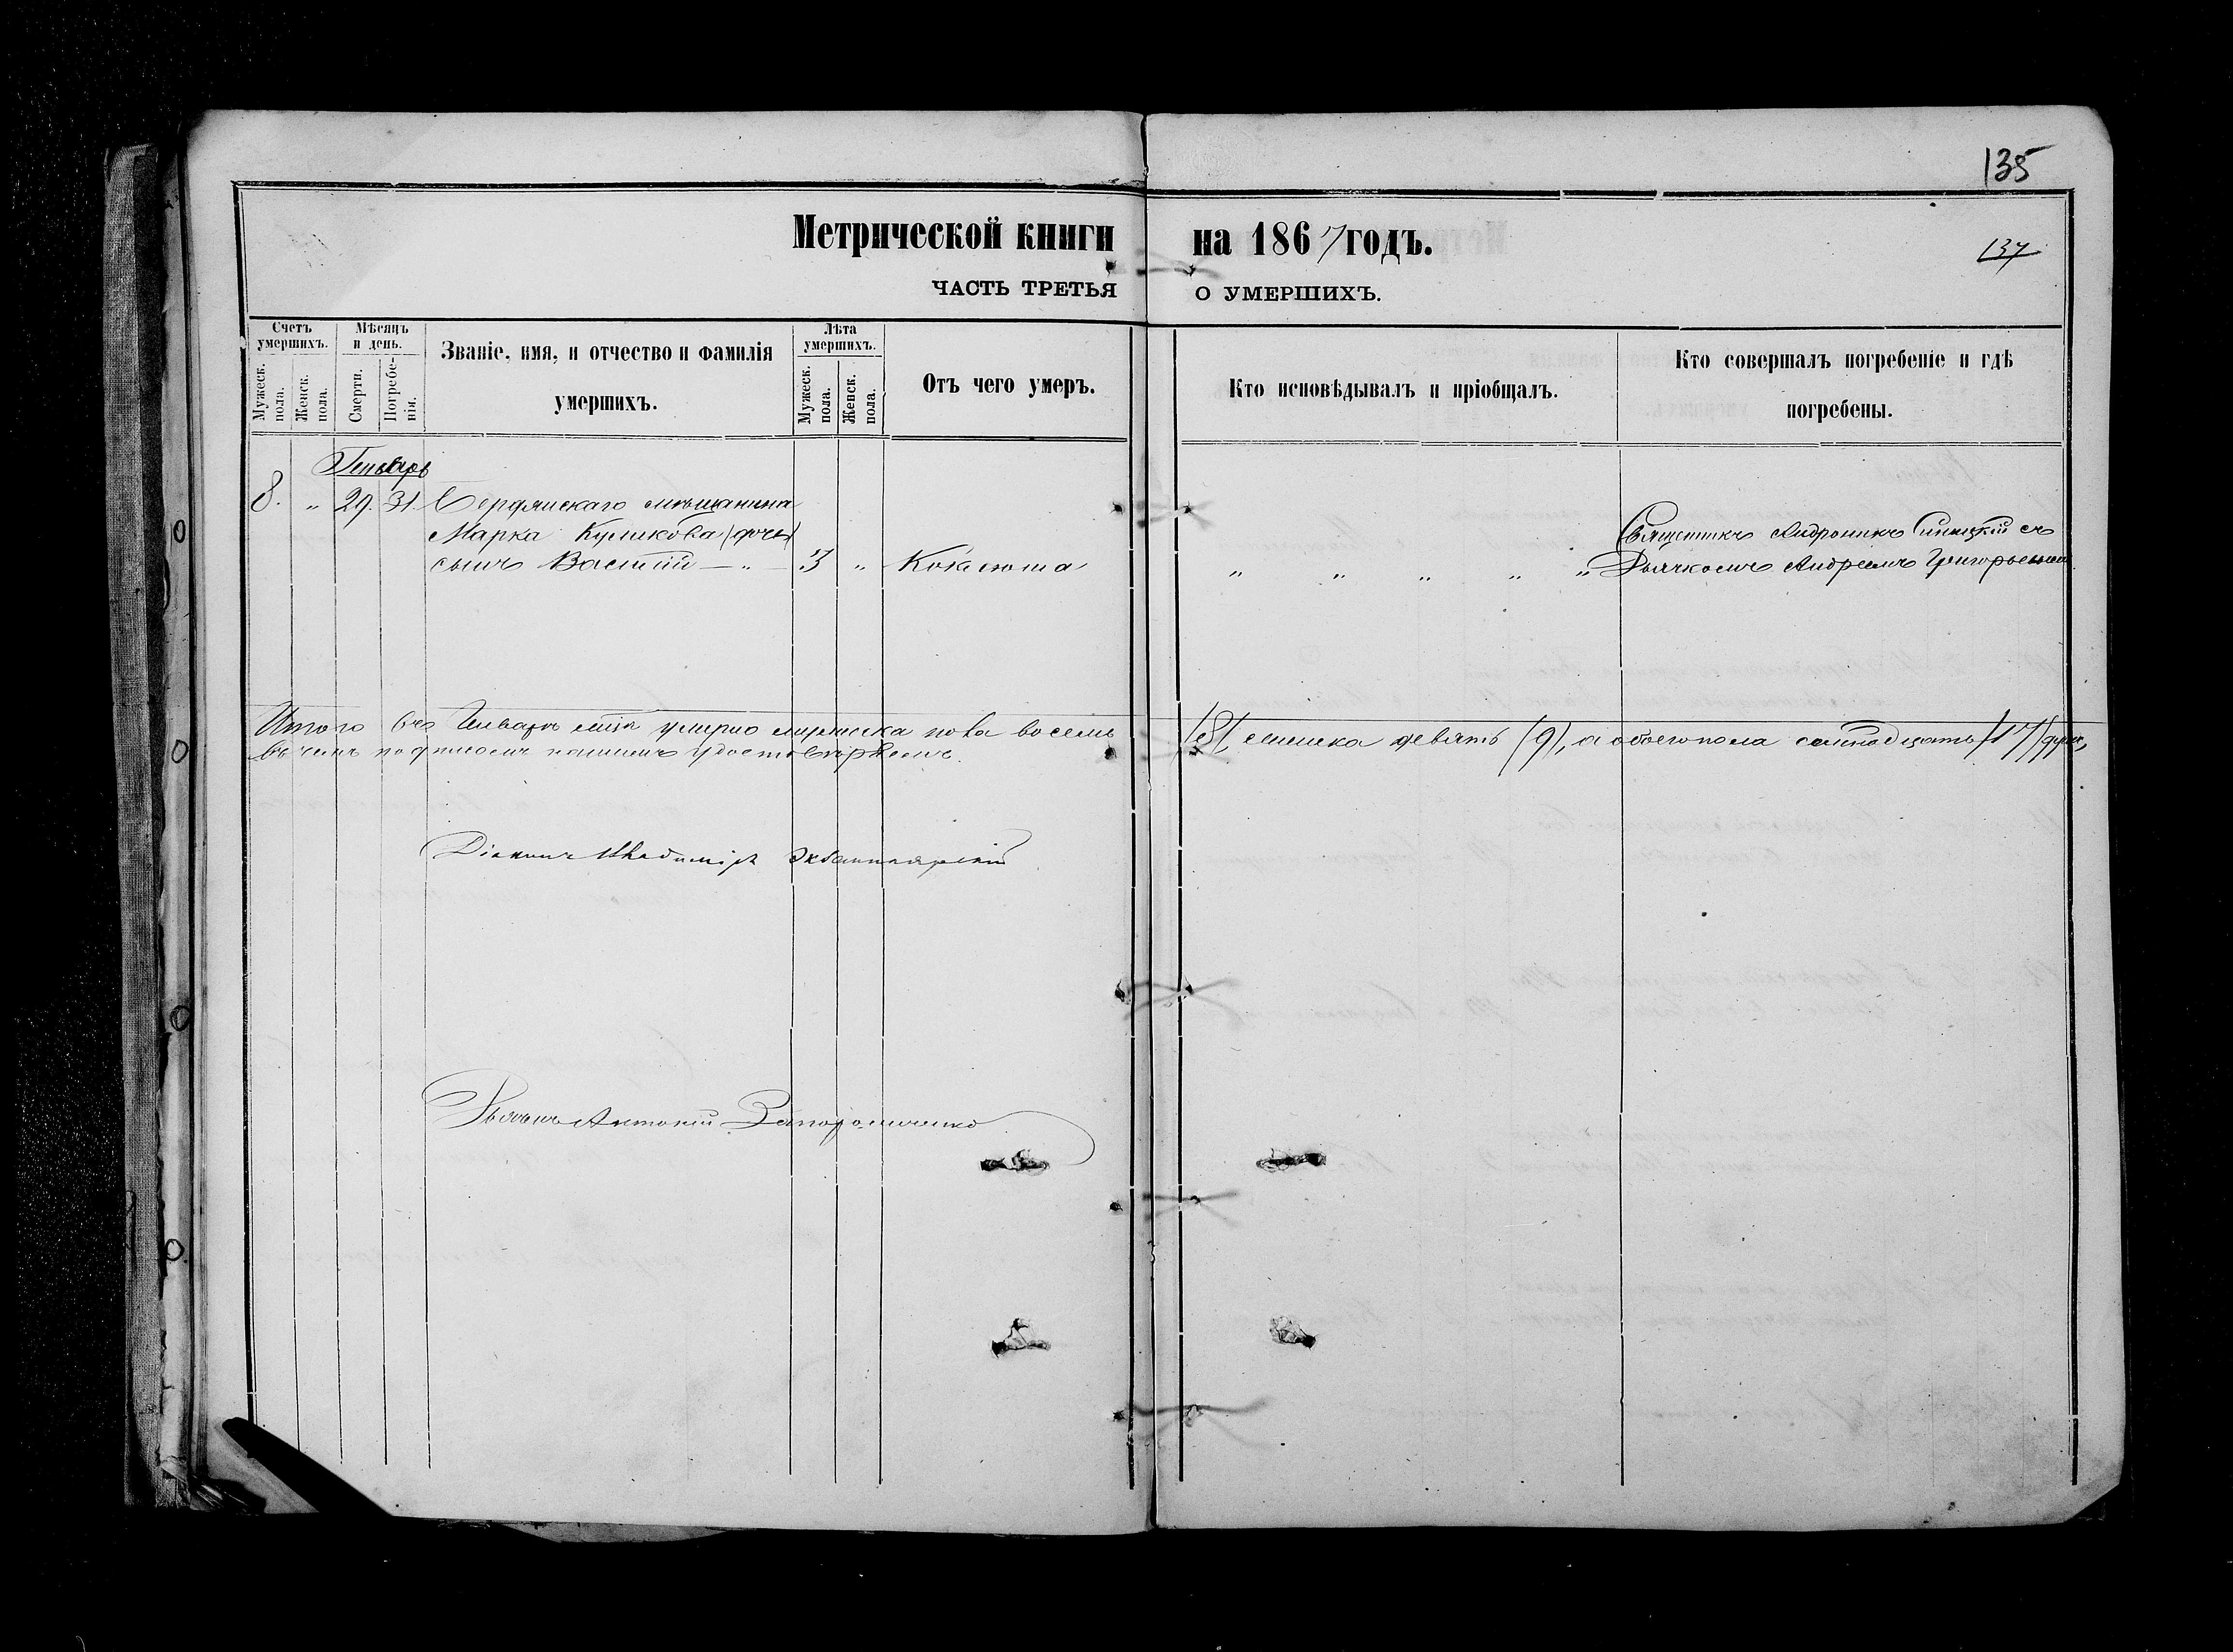 135
Метрической книги на 1867 годъ.
137
ЧАСТЬ ТРЕТЬЯ О УМЕРШИХЪ.
Счетъ умершихъ.
Мужеск. пола.
Женск. пола.
Мѣсяцъ и день.
Смерти.
Погребенія.
Званіе, имя, и отчество и фамилія
умершихъ.
Лѣта умершихъ.
Мужеск. пола.
Женск. пола.
Отъ чего умеръ.
Кто исповѣдывалъ и пріобщалъ.
Кто совершалъ погребеніе и гдѣ
погребены.
Генварь
8. " 29. 31. Бердянскаго мѣщанина
Марка Куликова (дочь)
сынъ Василій — " — 3 " Коклюша " " " " "
Священникъ Андроникъ Синицкій съ
Дьячкомъ Андреемъ Григорьевымъ
Итого въ Генварѣ м̃цѣ умерло мужеска пола восемь /8/, женска девять (9), а обоего пола семнадцать /17/ душъ,
въ чемъ подписомъ нашимъ удостовѣряемъ.
Діаконъ Владиміръ
Дьячекъ Антоній Запорожченко